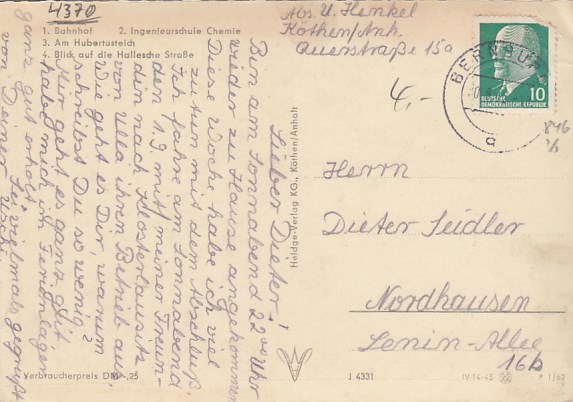 4370
1. Bahnhof 2. Ingenieurschule Chemie
3. Am Hubertusteich
4. Blick auf die Hallesche Straße
Abs. U. Henkel
Köthen/Anh.
Querstraße 15a
BERNBURG
DEUTSCHE
DEMOKRATISCHE REPUBLIK
10
4,-
846
Lieber Dieter!
Bin am Sonnabend 22⁰⁰ Uhr
wieder zu Hause angekommen.
Diese Woche habe ich viel
zu tun mit dem Abschluß.
Ich fahre am Sonnabend
den 1.9. mit meiner Freun-
din nach Klosterlausitz
von Ulla ihren Betrieb aus.
Wie geht es Dir, warum
schreibst Du so wenig?
Mir geht es ganz gut
habe mich im Ferienlager
ganz gut erholt.
Sei vielmals gegrüßt
von Deiner Uschi
Heldge-Verlag KG., Köthen/Anhalt
Herrn
Dieter Seidler
Nordhausen
Lenin-Allee
16b
Verbraucherpreis DM -,25
J 4331
IV-14-45
P 1/62